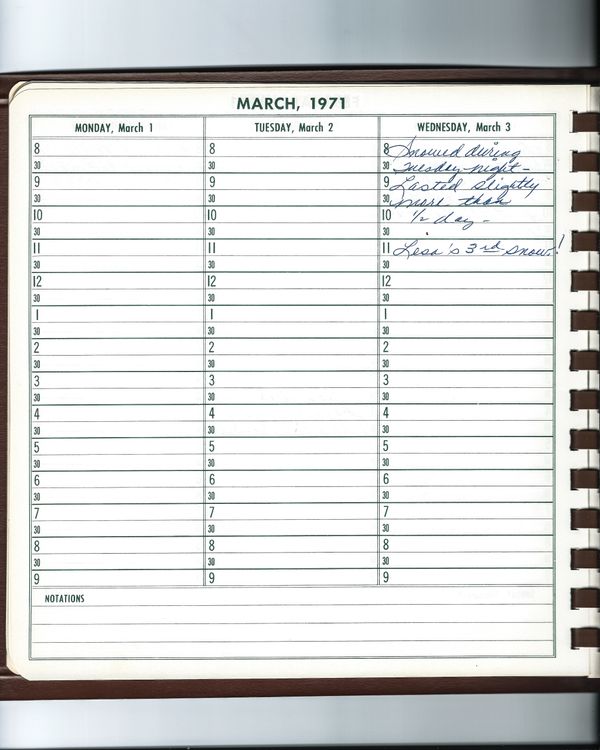 MARCH, 1971
MONDAY, March 1
TUESDAY, March 2
WEDNESDAY, March 3
8
30
9
30
10
30
11
30
12
30
1
30
2
30
3
30
4
30
5
30
6
30
7
30
8
30
9
8
30
9
30
10
30
11
30
12
30
1
30
2
30
3
30
4
30
5
30
6
30
7
30
8
30
9
8 Snowed during
30 Tuesday night -
9 Lasted slightly
30 more than
10 1/2 day -
30
11 Lesa's 3rd snow!
30
12
30
1
30
2
30
3
30
4
30
5
30
6
30
7
30
8
30
9
NOTATIONS